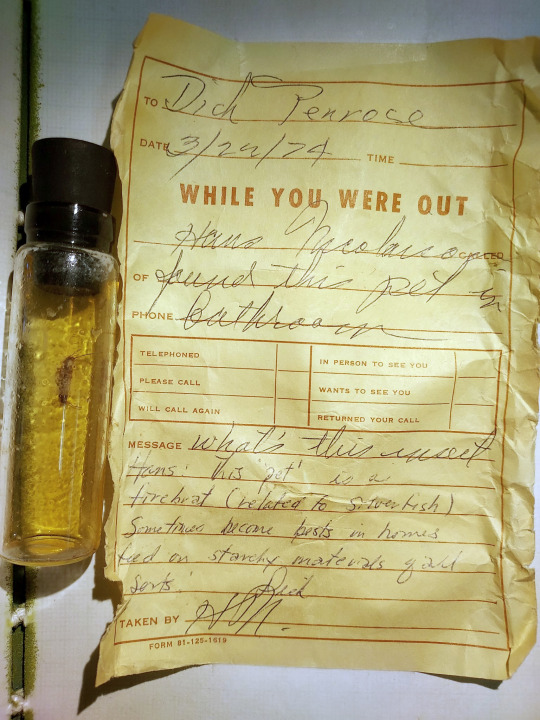 TO Dick Penrose
DATE 3/24/74 TIME
WHILE YOU WERE OUT
Hans Nicolaison
OF found this pet in
PHONE bathroom
TELEPHONED IN PERSON TO SEE YOU
PLEASE CALL WANTS TO SEE YOU
WILL CALL AGAIN RETURNED YOUR CALL
MESSAGE what's this insect
Hans: this 'pet' is a
firebrat (related to silverfish)
Sometimes become pests in homes
feed on starchy materials of all
sorts. Dick
TAKEN BY
FORM 81-125-1619